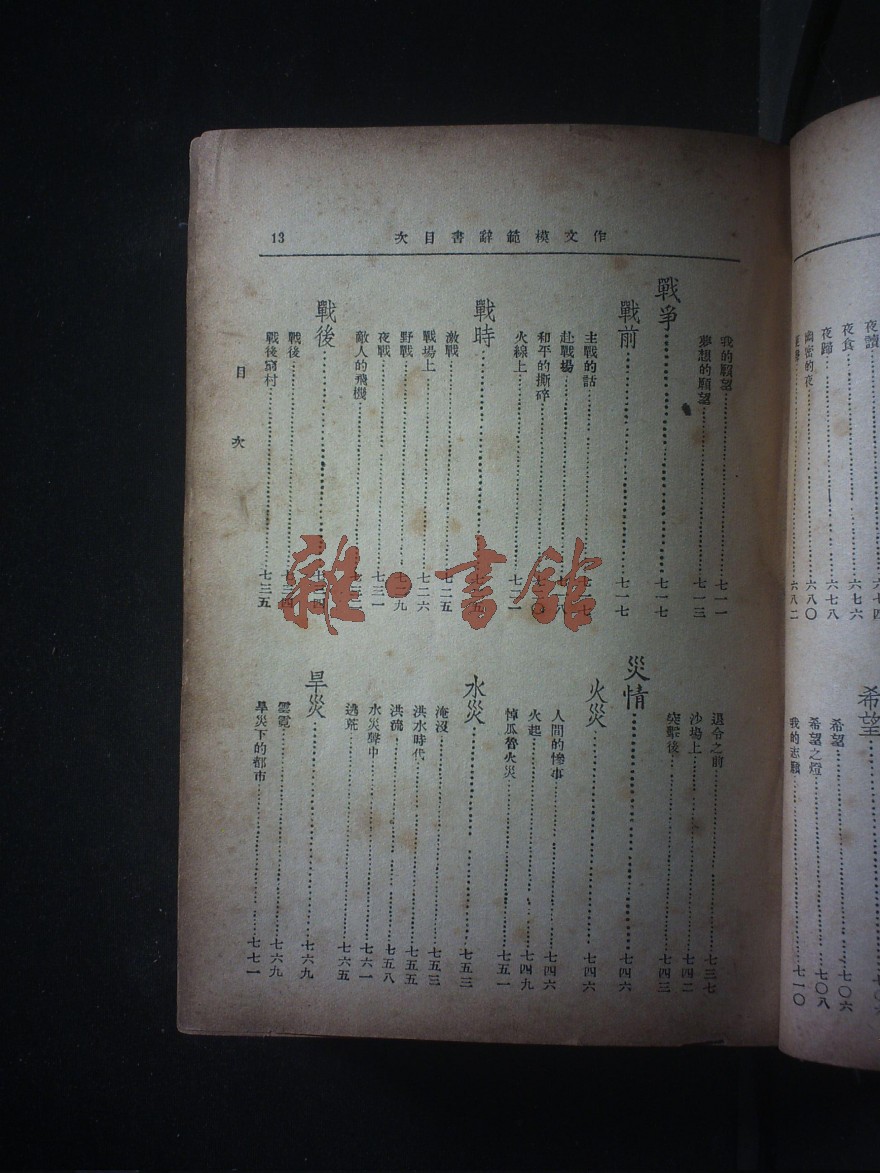 夜讀……六七四
夜食……六七六
夜歸……六七八
幽密的夜……六八〇
六八二
希望……七〇六
希望……七〇六
希望之燈……七〇八
我的志願……七一〇
作文模範辭書目次
13
我的願望……七一一
夢想的願望……七一三
戰爭……七一七
戰前……七一七
主戰的話……七一七
赴戰場……七一八
和平的撕碎……七二〇
火線上……七二一
戰時……
激戰……七二五
戰場上……七二六
野戰……七二九
夜戰……七三一
敵人的飛機……
戰後……七三四
戰後……七三四
戰後窮村……七三五
退令之前……七三七
沙場上……七四二
突擊後……七四三
災情……七四六
火災……七四六
人間的慘事……七四六
火起……七四九
悼瓜魯火災……七五一
水災……七五三
淹沒……七五三
洪水時代……七五五
洪流……七五八
水災聲中……七六一
逃荒……七六五
旱災……七六九
雲霓……七六九
旱災下的都市……七七一
目次
雜·書館